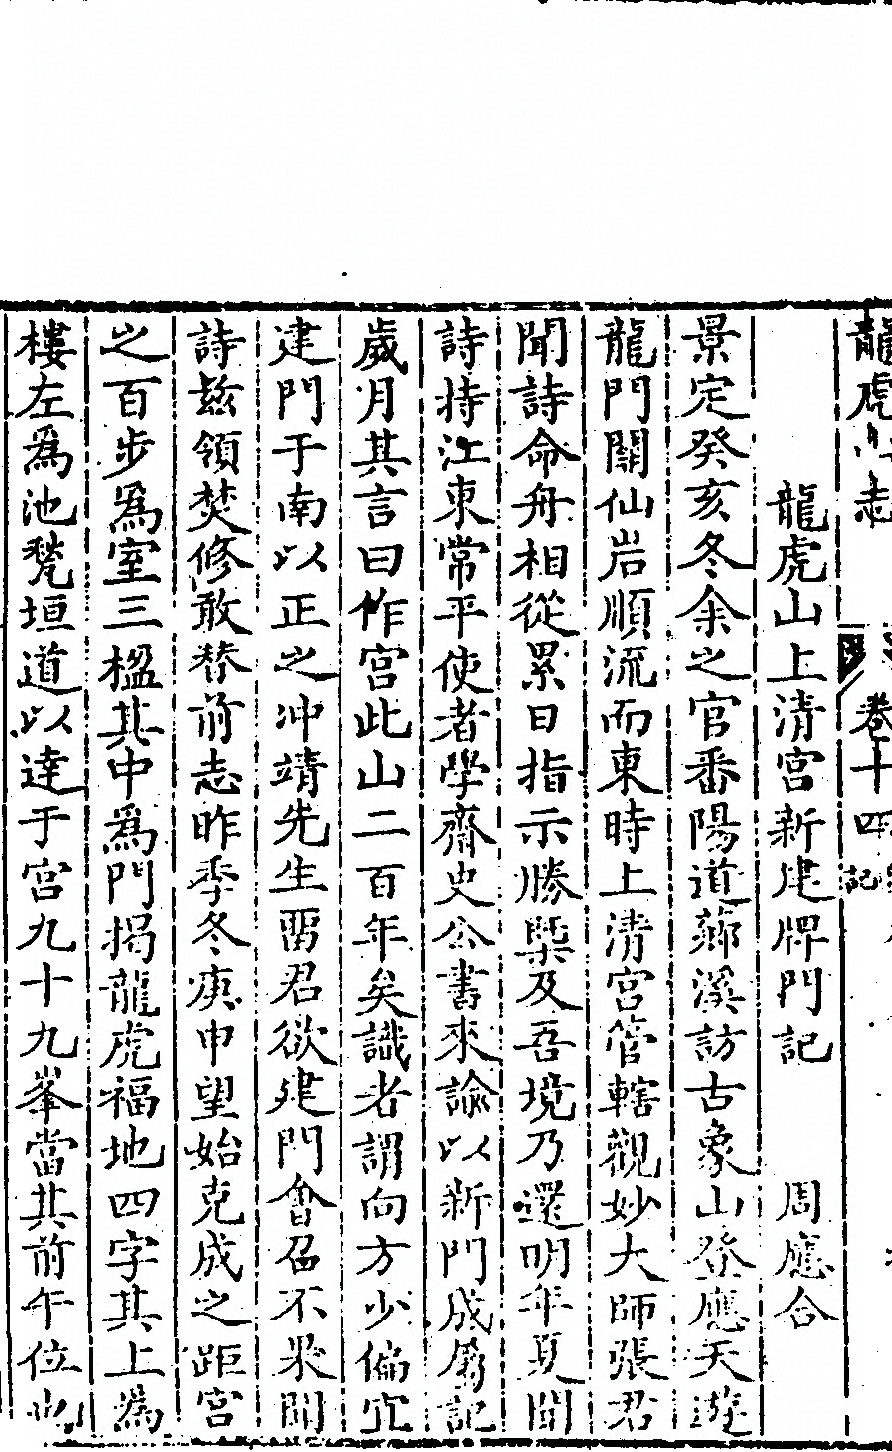 龍虎山志 卷十四 記
龍虎山上清宫新建牌門記 周應合
景定癸亥冬余之官番陽道薌溪訪古象山登應天遊
龍門關仙岩順流而東時上清宫管轄觀妙大師張君
聞詩命舟相從累日指示勝槩及吾境乃還明年夏聞
詩持江東常平使者學齋史公書來諭以新門成屬記
歲月其言曰作宫此山二百年矣識者謂向方少偏宜
建門于南以正之冲靖先生畱君欲建門會召不果聞
詩兹領焚修敢替前志昨季冬庚申望始克成之距宫
之百步爲室三楹其中爲門揭龍虎福地四字其上爲
樓左爲池甃垣道以達于宫九十九峯當其前午位也